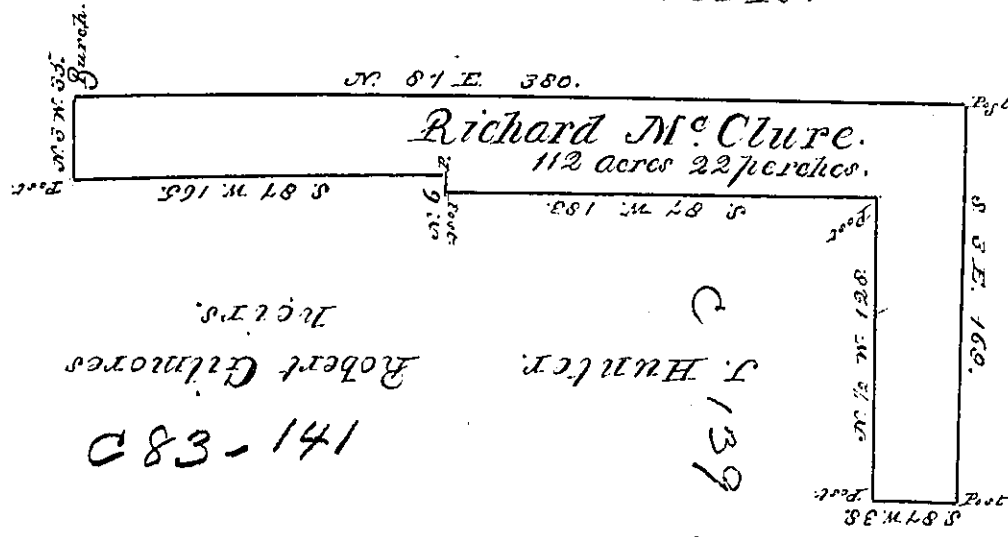 Burch.
N. 87 E. 380.
Post
Richard Mc. Clure.
112 acres 22 perches.
N. 3 W. 33
Post
S. 87 W. 165
P.
S. 9
Post
S. 87 W. 183.
Post
S 3 E. 169.
N 3 W 128
heirs.
Robert Gilmores
J. Hunter.
C 139
C83-141
Post
Post
S. 87 W. 38